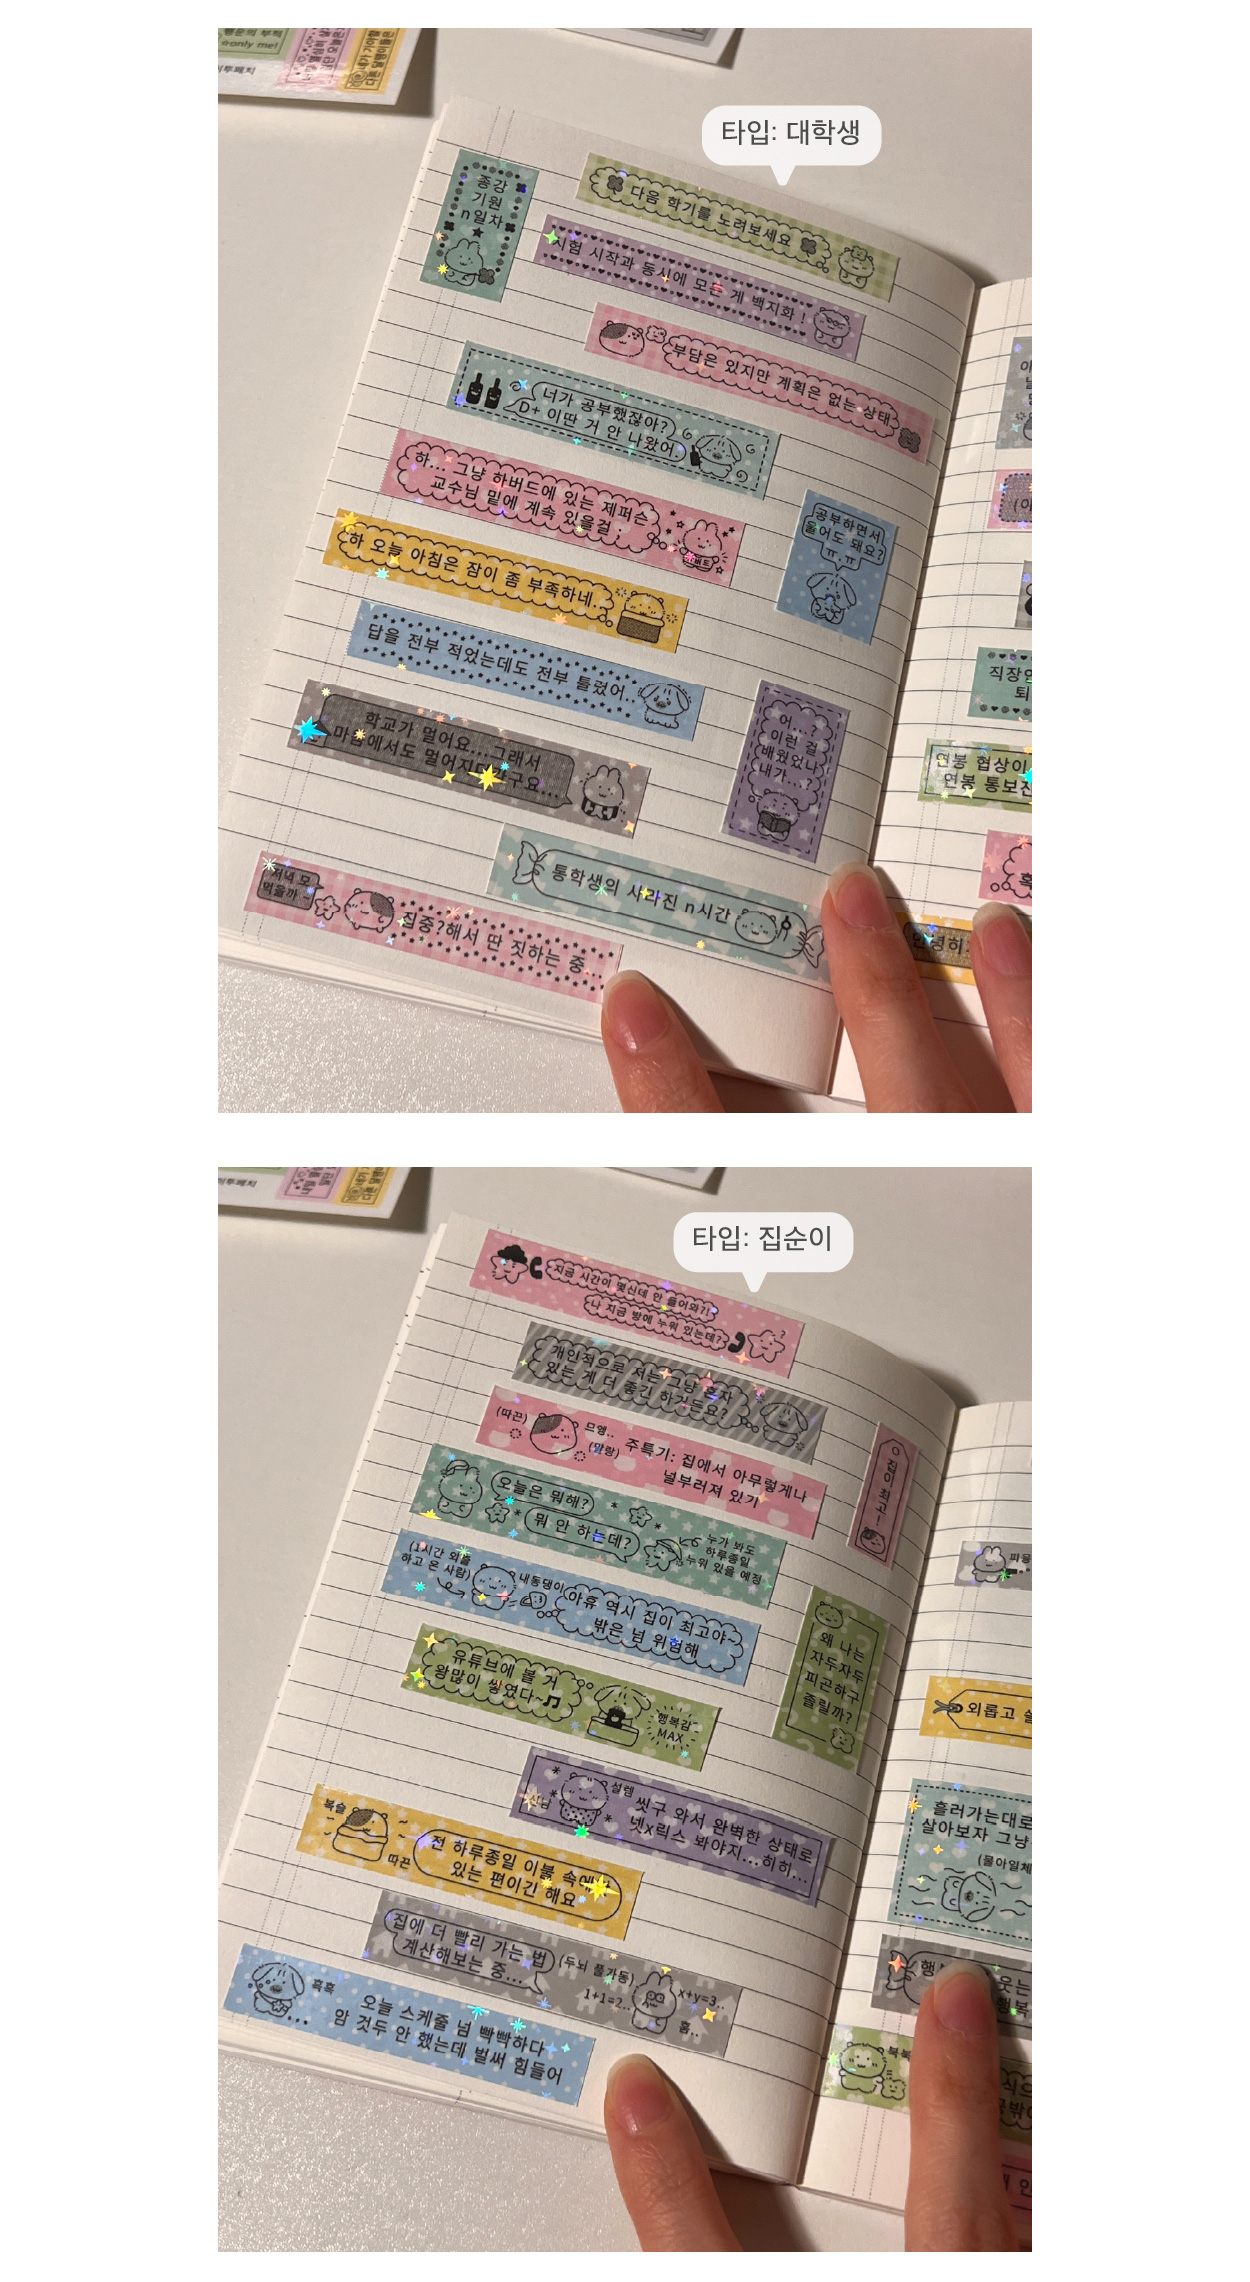 행운의 부적
☆only me!
타입: 대학생
종강
기원
n일차
다음 학기를 노려보세요
시험 시작과 동시에 모든 게 백지화!
부담은 있지만 계획은 없는 상태
너가 공부했잖아?
D+ 이딴 거 안 나왔어.
하... 그냥 하버드에 있는 제퍼슨
교수님 밑에 계속 있을걸;
공부하면서
울어도 돼요?
ㅠ.ㅠ
하 오늘 아침은 잠이 좀 부족하네..
답을 전부 적었는데도 전부 틀렸어..
학교가 멀어요...그래서
마음에서도 멀어지더라구요...
어...?
이런 걸
배웠었나
내가...?
통학생의 사라진 n시간
저녁 모
먹을까~
집중?해서 딴 짓하는 중...
직장인
퇴
연봉 협상이
연봉 통보진
혹
안녕히
타입: 집순이
지금 시간이 몇신데 안 들어와?!
나 지금 방에 누워 있는데?
개인적으로 저는 그냥 혼자
있는 게 더 좋긴 하거든요?
(따끈)
므앵..
(말랑)
주특기: 집에서 아무렇게나
널부러져 있기
집이 최고!
오늘은 뭐해?
뭐 안 하는데?
누가 봐도
하루종일
누워 있을 예정
(1시간 외출
하고 온 사람)
내동댕이
아휴 역시 집이 최고야~
밖은 넘 위험해
왜 나는
자두자두
피곤하구
졸릴까?
유튜브에 볼 거
왕많이 쌓였다~♫
행복감
MAX
설렘
신남
씻구 와서 완벽한 상태로
넷x릭스 봐야지...히히...
복슬
따끈
전 하루종일 이불 속에
있는 편이긴 해요
집에 더 빨리 가는 법
계산해보는 중...
(두뇌 풀가동)
1+1=2..
x+y=3..
흠..
흑흑
오늘 스케줄 넘 빡빡하다
암 것두 안 했는데 벌써 힘들어
외롭고 쓸
흘러가는대로
살아보자 그냥
(물아일체
웃는
행복
북북